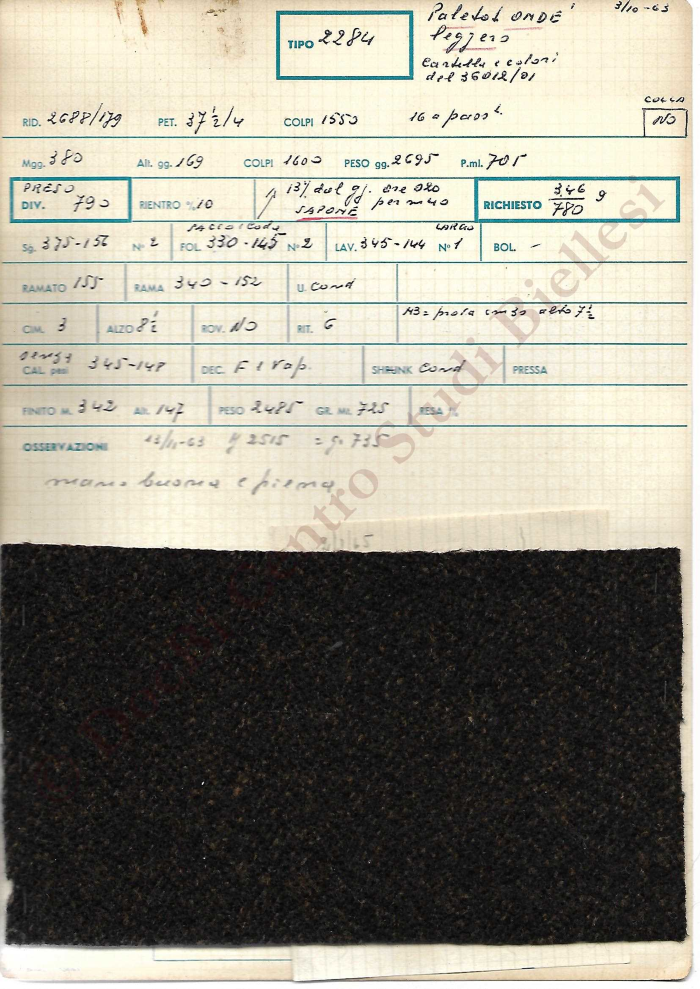 3/10-63
TIPO 2284
Paletot ONDÉ
leggero
Cartella e colori
del 36012/01
COLLA
NO
RID. 2688/179 PET. 37 1/2/4 COLPI 1550 16 a pass.
Mgg. 380 Alt. gg. 169 COLPI 1600 PESO gg. 2695 P.ml. 705
PRESO
DIV. 790 RIENTRO % 10 13% dal gg. ore 020
SAPONE per
RICHIESTO 346/780 g
Sg. 375-156 N° 2 FOL. 330-145 N° 2 LAV. 345-144 LARGO N° 1 BOL. -
RAMATO 155 RAMA 340-152 U. Cond
CIM. 3 ALZO 8 1/2 ROV. NO RIT. 6 N3= alto 7 1/2
senza
CAL. pesi 345-148 DEC. F e Vap. SHRUNK Cond PRESSA
FINITO M. 342 Alt. 147 PESO 2485 GR. Mt. 725 RESA %
OSSERVAZIONI 13/11-63 2515 = g. 735
mano buona e piena
Centro Studi Biellesi